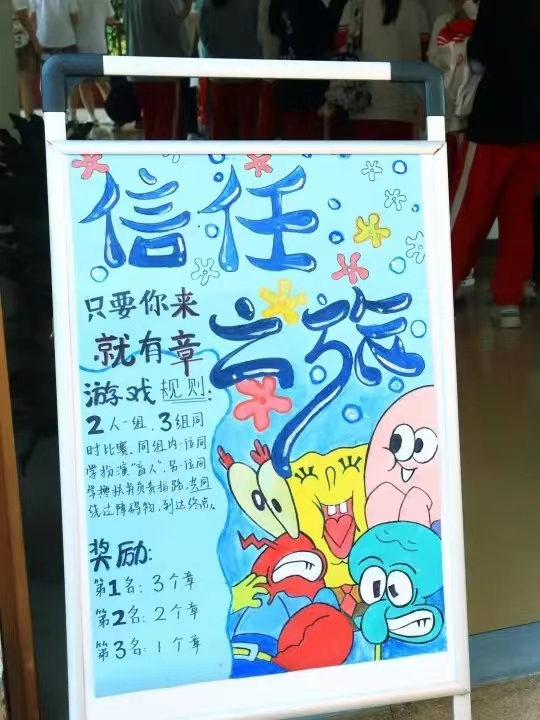 信任
之旅
只要你来
就有章
游戏规则:
2人一组,3组同
时比赛,同组内一位同
学扮演“盲人”,另一位同
学搀扶并负责指路,共同
绕过障碍物,到达终点。
奖励:
第1名:3个章
第2名:2个章
第3名:1个章